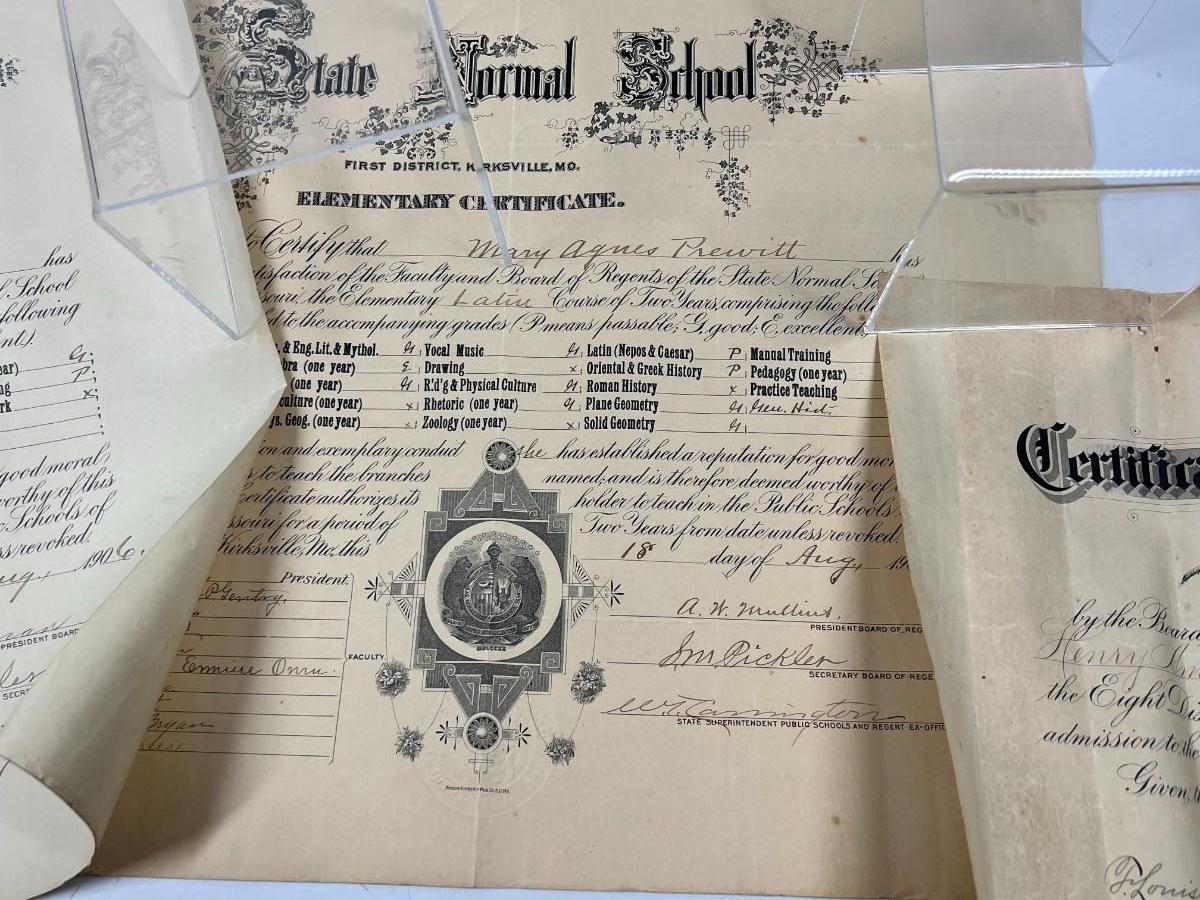 State Normal School
FIRST DISTRICT, KIRKSVILLE, MO.
ELEMENTARY CERTIFICATE.
to Certify that Mary Agnes Prewitt has
satisfaction of the Faculty and Board of Regents of the State Normal
the Elementary Latin Course of Two Years, comprising the
to the accompanying grades (P. means passable; G. good; E. excellent
& Eng. Lit. & Mythol. G Vocal Music G Latin (Nepos & Caesar) P Manual Training
bra (one year) E Drawing x Oriental & Greek History P Pedagogy (one year)
(one year) G R'd'g & Physical Culture G Roman History x Practice Teaching
culture (one year) x Rhetoric (one year) G Plane Geometry G Gen. Hist.
ys. Geog. (one year) x Zoology (one year) x Solid Geometry G
ion and exemplary conduct she has established a reputation for good
to teach the branches named, and is therefore deemed worthy of
ertificate authorizes its holder to teach in the Public Schools
ssouri for a period of Two Years from date unless revoked.
Kirksville, Mo., this 18 day of Aug., 190
President.
Gentry,
FACULTY
Bryan
A. W. Mullins,
PRESIDENT BOARD OF REG
S M Pickler
SECRETARY BOARD OF REGE
W. T. Carrington
STATE SUPERINTENDENT PUBLIC SCHOOLS AND REGENT EX-OFFIC
has
School
following
ent).
ear) G.
ng P.
rk x
good moral
worthy of this
Schools of
ss revoked.
Aug., 1906.
PRESIDENT BOARD
SECR
Certifica
by the Board
Henry
the Eight
admission to the
Given,
F. Louis